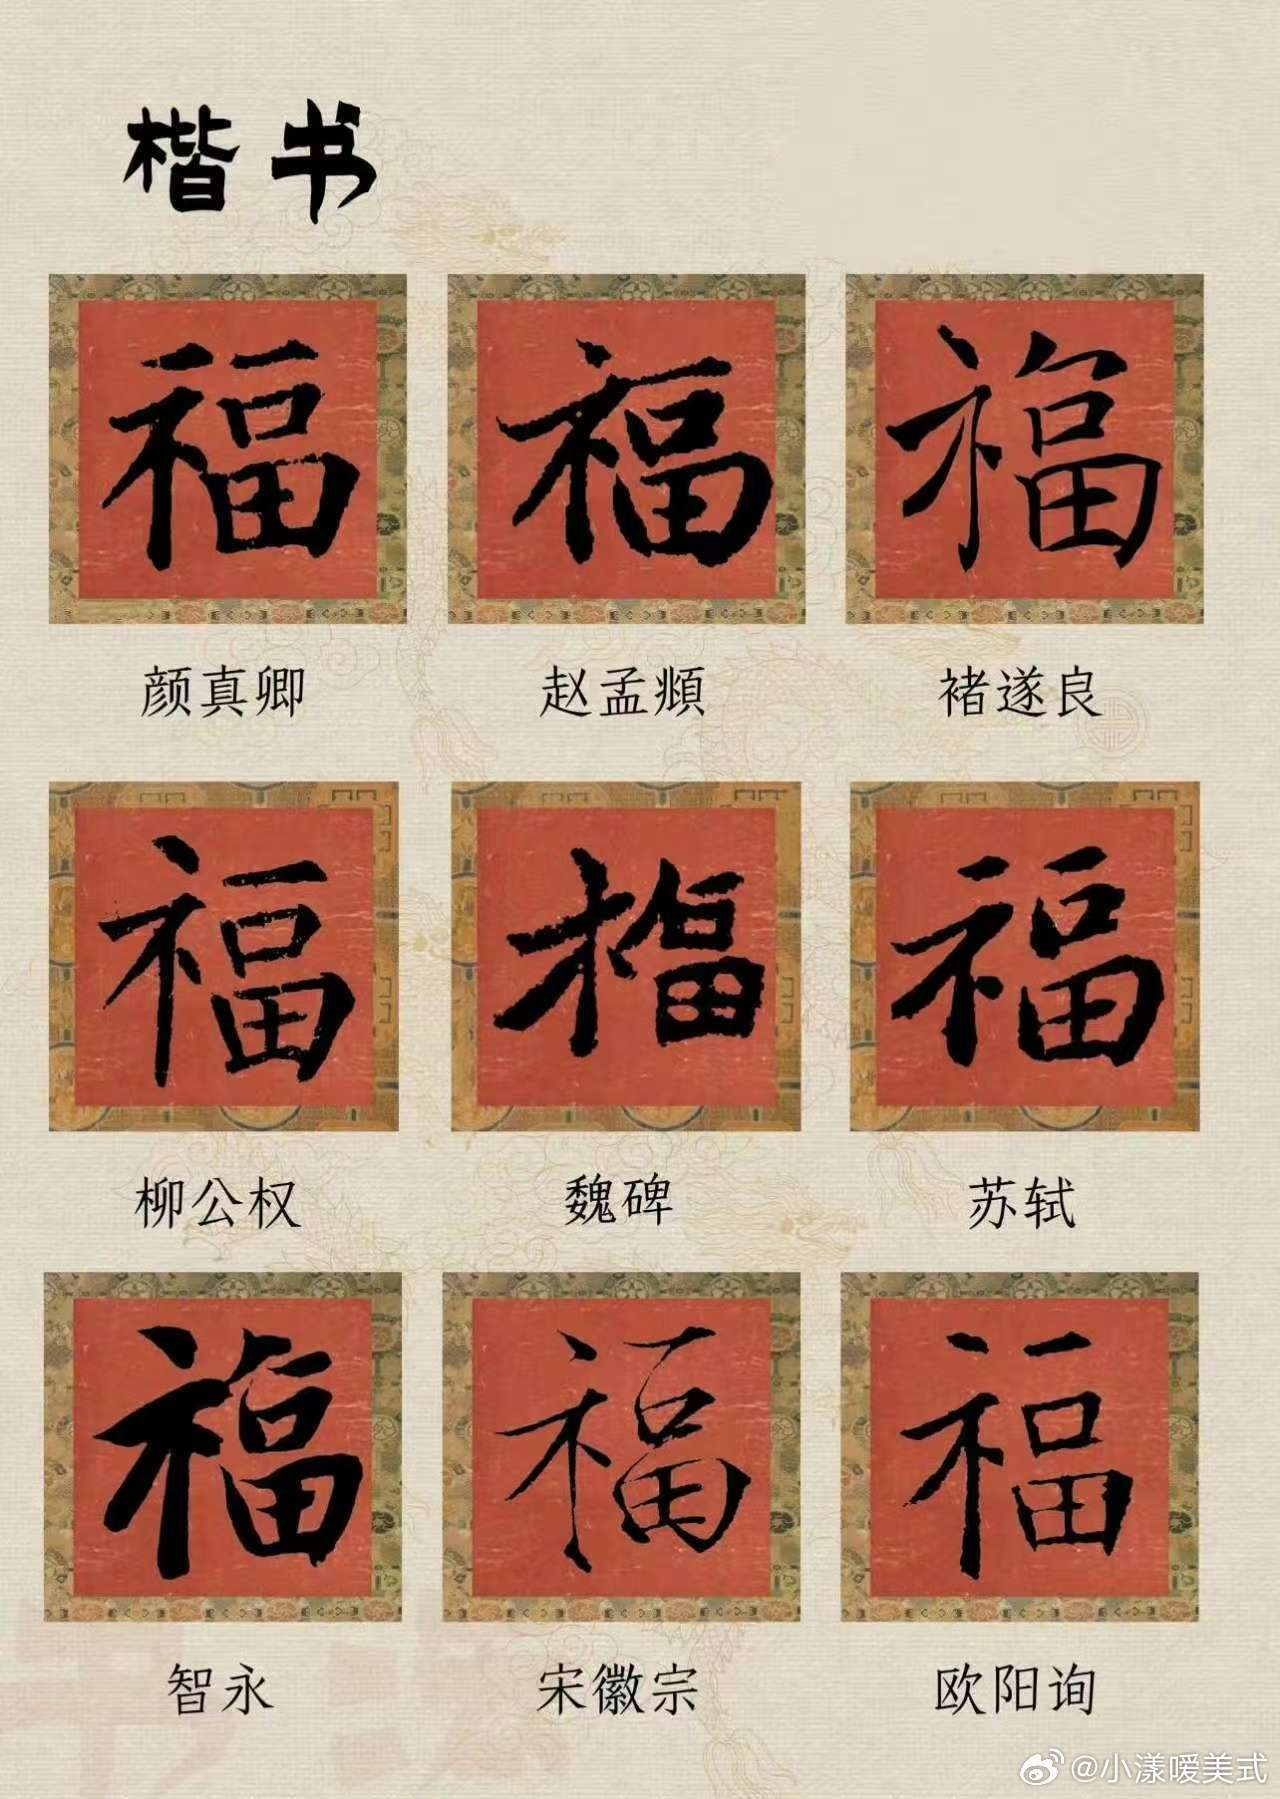 楷书
福 福 福
颜真卿 赵孟頫 褚遂良
福 福 福
柳公权 魏碑 苏轼
福 福 福
智永 宋徽宗 欧阳询
@小漾嗳美式